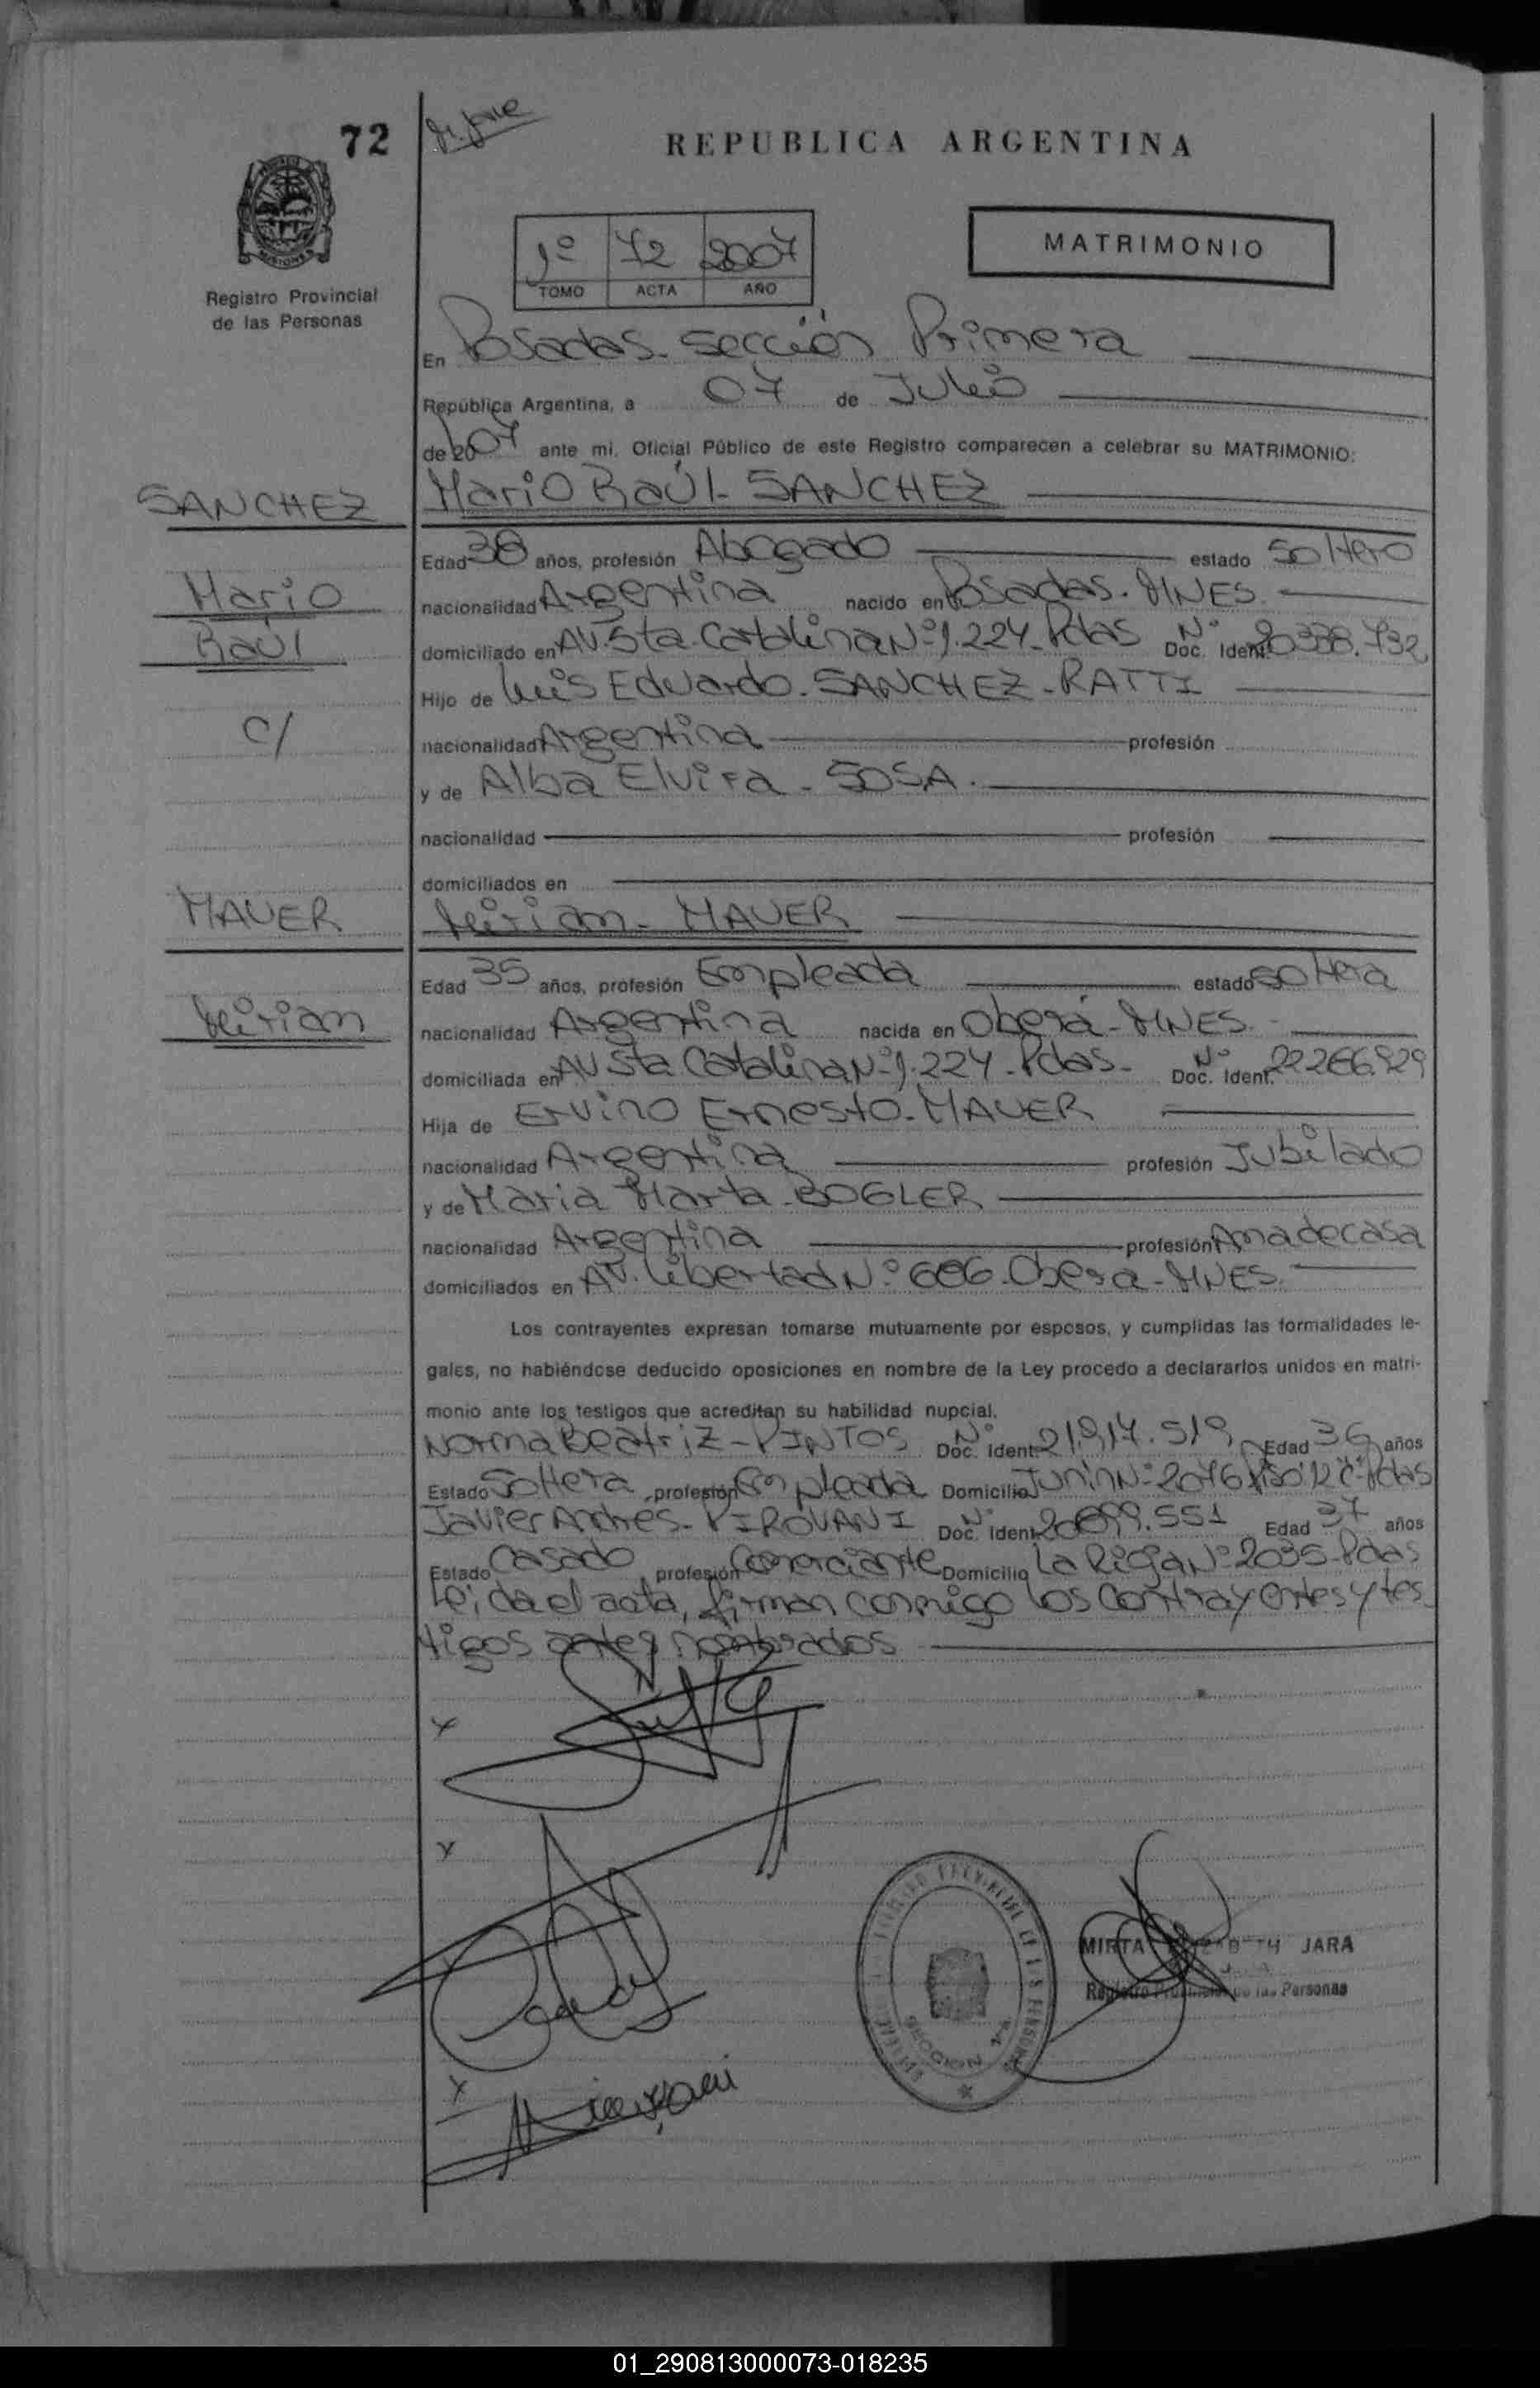 72
REPUBLICA ARGENTINA
1º 72 2007
TOMO ACTA AÑO
MATRIMONIO
Registro Provincial
de las Personas
En Posadas. sección Primera
República Argentina, a 07 de Julio
de 2007 ante mi, Oficial Público de este Registro comparecen a celebrar su MATRIMONIO:
SANCHEZ
Mario Raúl- SANCHEZ
Edad 38 años, profesión Abogado estado Soltero
Mario
nacionalidad Argentina nacido en Posadas. MNES.
Raúl
domiciliado en AV. Sta. Catalina Nº 1.224- Pdas Nº Doc. Ident. 20338.732
Hijo de Luis Eduardo- SANCHEZ-RATTI
C/
nacionalidad Argentina profesión
y de Alba Elvira - SOSA.
nacionalidad profesión
domiciliados en
MAUER
Mirian- MAUER
Edad 35 años, profesión Empleada estado Soltera
Mirian
nacionalidad Argentina nacida en Oberá- MNES.
domiciliada en AV Sta Catalina Nº 1.224- Pdas- Nº Doc. Ident. 22266.929
Hija de Ervino Ernesto- MAUER
nacionalidad Argentina profesión Jubilado
y de Maria Marta-BOGLER
nacionalidad Argentina profesión Ama de casa
domiciliados en AV. Libertad Nº 606- Obera-MNES.
Los contrayentes expresan tomarse mutuamente por esposos, y cumplidas las formalidades le-
gales, no habiéndose deducido oposiciones en nombre de la Ley procedo a declararlos unidos en matri-
monio ante los testigos que acreditan su habilidad nupcial.
Norma Beatriz-PINTOS Nº Doc. Ident. 21.917.519 Edad 36 años
Estado Soltera, profesión Empleada Domicilio Junin Nº 2076 Piso: 12 "C"-Pdas
Javier Andres- PIROVANI Nº Doc. Ident. 20699.551 Edad 37 años
Estado Casado, profesión Comerciante Domicilio La Rioja Nº 2035-Pdas
Leida el acta, firman conmigo los Contrayentes y tes
tigos antes nombrados
x
x
x
SECCION 1ª
MIRTA JARA
Registro Provincial de las Personas
01_290813000073-018235